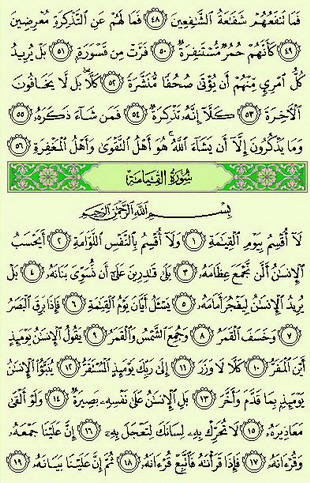 فَمَا تَنفَعُهُمْ شَفَاعَةُ ٱلشَّـٰفِعِينَ ٤٨ فَمَا لَهُمْ عَنِ ٱلتَّذْكِرَةِ مُعْرِضِينَ
٤٩ كَأَنَّهُمْ حُمُرٌ مُّسْتَنفِرَةٌ ٥٠ فَرَّتْ مِن قَسْوَرَةٍۭ ٥١ بَلْ يُرِيدُ
كُلُّ ٱمْرِئٍ مِّنْهُمْ أَن يُؤْتَىٰ صُحُفًا مُّنَشَّرَةً ٥٢ كَلَّا ۖ بَل لَّا يَخَافُونَ
ٱلْـَٔاخِرَةَ ٥٣ كَلَّآ إِنَّهُۥ تَذْكِرَةٌ ٥٤ فَمَن شَآءَ ذَكَرَهُۥ ٥٥
وَمَا يَذْكُرُونَ إِلَّآ أَن يَشَآءَ ٱللَّهُ ۚ هُوَ أَهْلُ ٱلتَّقْوَىٰ وَأَهْلُ ٱلْمَغْفِرَةِ ٥٦
سُورَةُ القِيَامَةِ
بِسْمِ ٱللَّهِ ٱلرَّحْمَـٰنِ ٱلرَّحِيمِ
لَآ أُقْسِمُ بِيَوْمِ ٱلْقِيَـٰمَةِ ١ وَلَآ أُقْسِمُ بِٱلنَّفْسِ ٱللَّوَّامَةِ ٢ أَيَحْسَبُ
ٱلْإِنسَـٰنُ أَلَّن نَّجْمَعَ عِظَامَهُۥ ٣ بَلَىٰ قَـٰدِرِينَ عَلَىٰٓ أَن نُّسَوِّىَ بَنَانَهُۥ ٤ بَلْ
يُرِيدُ ٱلْإِنسَـٰنُ لِيَفْجُرَ أَمَامَهُۥ ٥ يَسْـَٔلُ أَيَّانَ يَوْمُ ٱلْقِيَـٰمَةِ ٦ فَإِذَا بَرِقَ ٱلْبَصَرُ
٧ وَخَسَفَ ٱلْقَمَرُ ٨ وَجُمِعَ ٱلشَّمْسُ وَٱلْقَمَرُ ٩ يَقُولُ ٱلْإِنسَـٰنُ يَوْمَئِذٍ
أَيْنَ ٱلْمَفَرُّ ١٠ كَلَّا لَا وَزَرَ ١١ إِلَىٰ رَبِّكَ يَوْمَئِذٍ ٱلْمُسْتَقَرُّ ١٢ يُنَبَّؤُا۟ ٱلْإِنسَـٰنُ
يَوْمَئِذٍۭ بِمَا قَدَّمَ وَأَخَّرَ ١٣ بَلِ ٱلْإِنسَـٰنُ عَلَىٰ نَفْسِهِۦ بَصِيرَةٌ ١٤ وَلَوْ أَلْقَىٰ
مَعَاذِيرَهُۥ ١٥ لَا تُحَرِّكْ بِهِۦ لِسَانَكَ لِتَعْجَلَ بِهِۦٓ ١٦ إِنَّ عَلَيْنَا جَمْعَهُۥ
وَقُرْءَانَهُۥ ١٧ فَإِذَا قَرَأْنَـٰهُ فَٱتَّبِعْ قُرْءَانَهُۥ ١٨ ثُمَّ إِنَّ عَلَيْنَا بَيَانَهُۥ ١٩